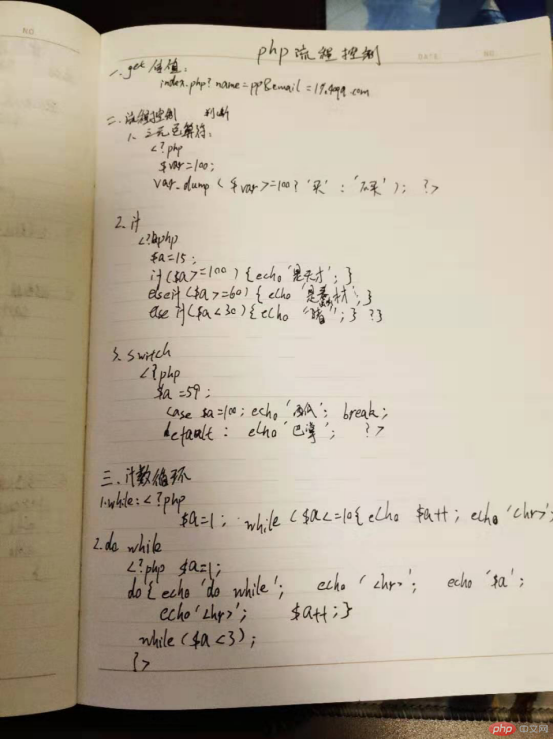 NO
php 流程控制
DATE: NO.
一、get 传值:
index.php?name=pp&email=19.@qq.com
二、流程控制 判断
1、三元运算符:
<?php
$var=100;
var_dump($var>=100?'买':'不买'); ?>
2. if
<?php
$a=15;
if($a>=100){echo '是天才';}
elseif($a>=60){echo '是';}
else if($a<30){echo '';} ?>
3. switch
<?php
$a=59;
case $a=100; echo ''; break;
default: echo ''; ?>
三、计数循环
1.while:<?php
$a=1; while($a<=10{echo $a++; echo'<hr>;
2.do while
<?php $a=1;
do{echo 'do while'; echo '<hr>'; echo '$a';
echo'<hr>'; $a++;}
while($a<3);
?>
php 中文网